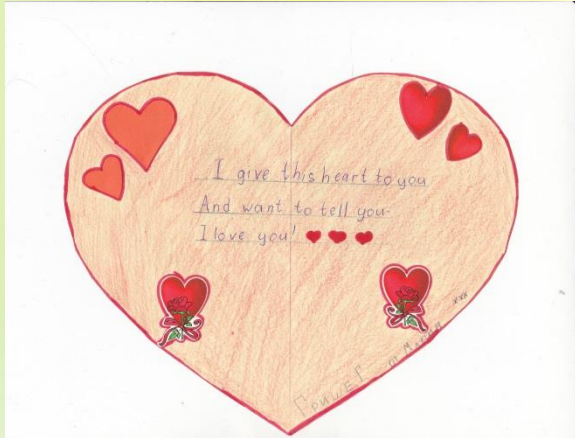 I give this heart to you
And want to tell you
I love you!
Грише Г от Марии
xxx